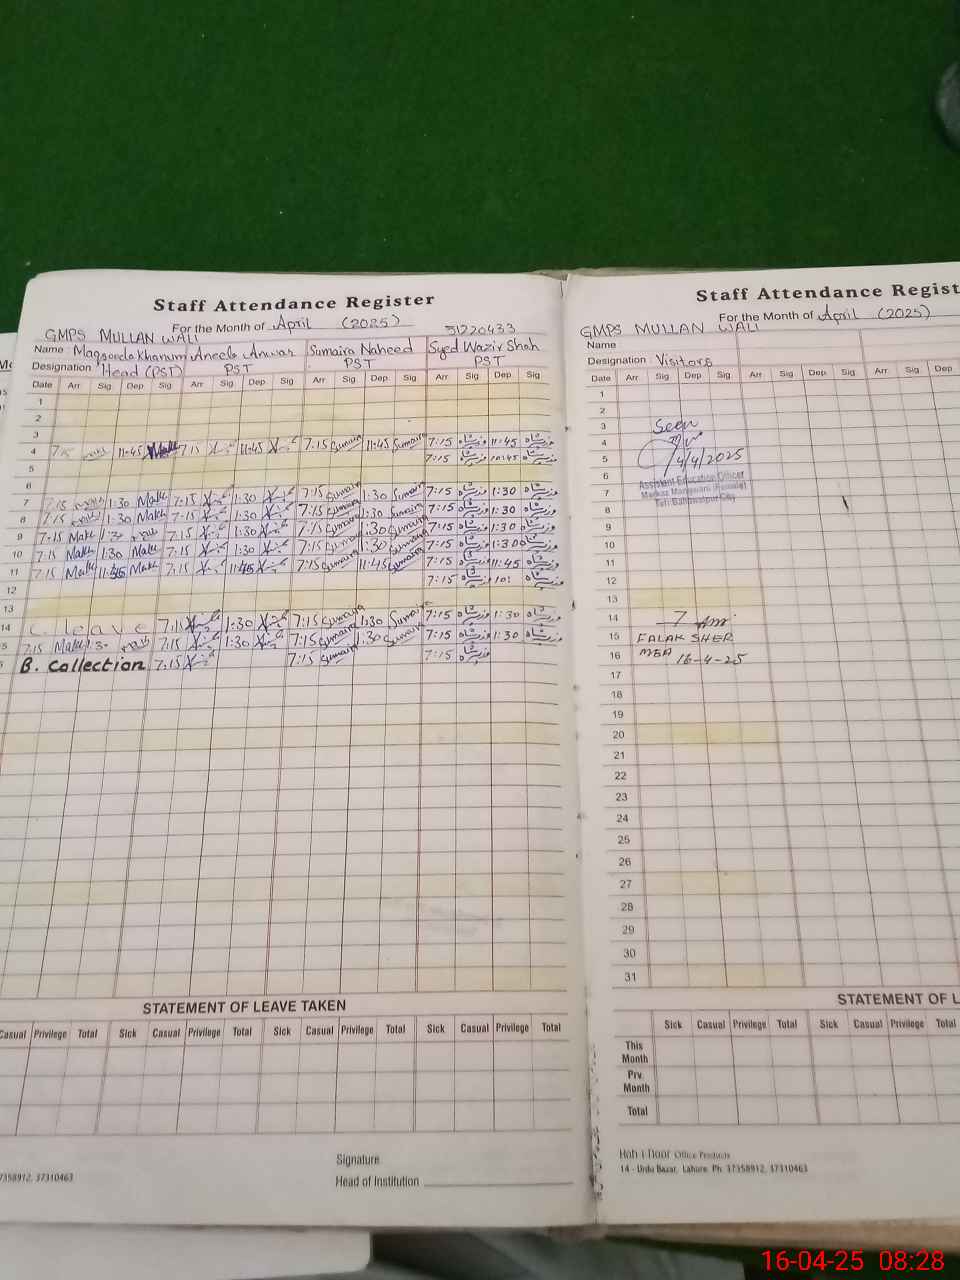 Staff Attendance Register
For the Month of April (2025)
GMPS MULLAN WALI
51220433
Name : Maqsooda Khanum Aneela Anwar Sumaira Naheed Syed Wazir Shah
Designation Head (PST) PST PST PST
Date Arr Sig Dep Sig Arr Sig Dep Sig Arr Sig Dep Sig Arr Sig Dep Sig
1
2
3
4 7:15 11:45 7:15 11:45 7:15 Sumaira 11:45 Sumaira 7:15 11:45
5 7:15 10:45
6
7 7:15 1:30 Makh 7:15 1:30 7:15 Sumaira 1:30 Sumaira 7:15 1:30
8 7:15 1:30 Makh 7:15 1:30 7:15 Sumaira 1:30 Sumaira 7:15 1:30
9 7:15 Makh 7:15 1:30 7:15 Sumaira 1:30 Sumaira 7:15 1:30
10 7:15 Makh 1:30 Makh 7:15 1:30 7:15 Sumaira 1:30 Sumaira 7:15 1:30
11 7:15 Makh 11:45 Makh 7:15 11:45 7:15 Sumaira 11:45 Sumaira 7:15 11:45
12 7:15
13
14 C. leave 7:15 1:30 7:15 Sumaira 1:30 Sumaira 7:15 1:30
5 7:15 Makh 1:30 7:15 1:30 7:15 Sumaira 1:30 Sumaira 7:15 1:30
B. Collection 7:15 7:15 Sumaira 7:15
STATEMENT OF LEAVE TAKEN
Casual Privilege Total Sick Casual Privilege Total Sick Casual Privilege Total Sick Casual Privilege Total
Signature
Head of Institution
7358912, 37310463
Staff Attendance Regist
For the Month of April (2025)
GMPS MULLAN WALI
Name :
Designation : Visitors
Date Arr Sig Dep Sig Arr Sig Dep Sig Arr Sig Dep
1
2
3 Seen
4
5 14/4/2025
6 Assistant Education Officer
7 Markaz (Female)
8 Teh: Bahawalpur City
9
10
11
12
13
14
15 FALAK SHER
16 MEA 16-4-25
17
18
19
20
21
22
23
24
25
26
27
28
29
30
31
STATEMENT OF L
Sick Casual Privilege Total Sick Casual Privilege Total
This Month
Prv. Month
Total
Office Products
14 - Urdu Bazar, Lahore. Ph: 37358912, 37310463
16-04-25 08:28